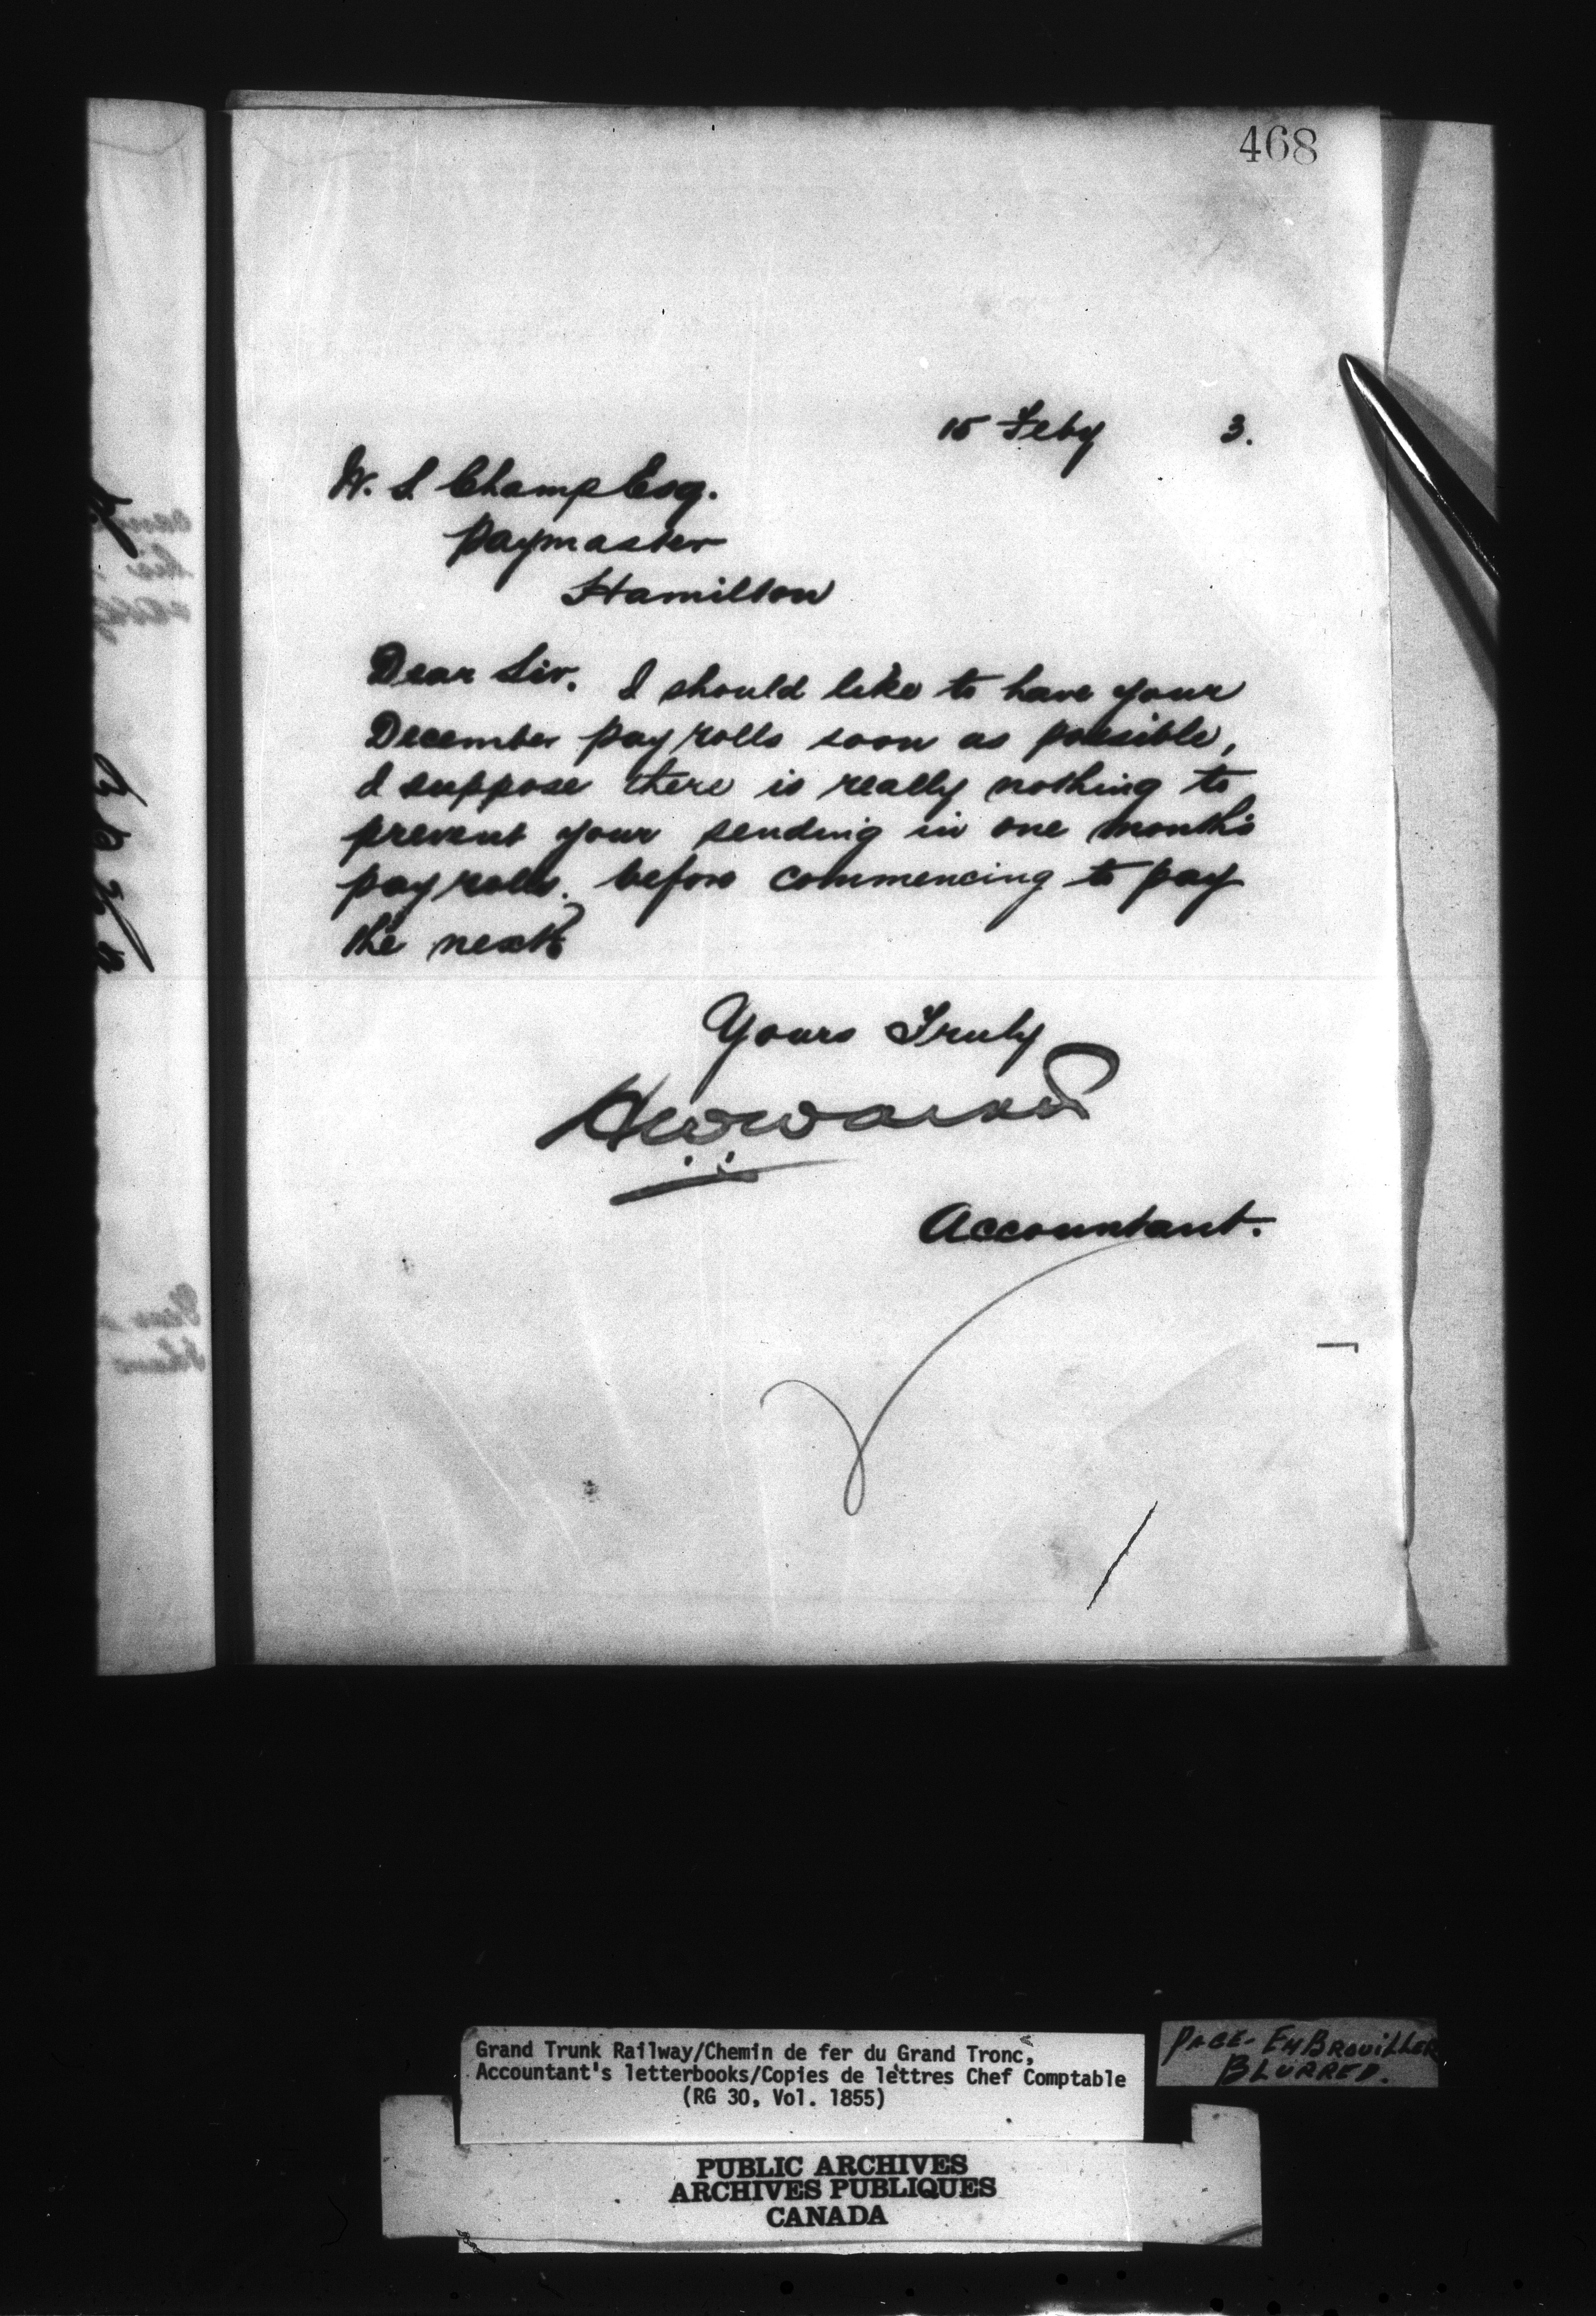 468
15 Feby 3.
W. S Champ Esq.
Paymaster
Hamilton
Dear Sir. I should like to have your
December pay rolls soon as possible,
I suppose there is really nothing to
prevent your sending in one month's
pay rolls. before commencing to pay
the next?
Yours Truly
Accountant.
Grand Trunk Railway/Chemin de fer du Grand Tronc,
Accountant's letterbooks/Copies de lettres Chef Comptable
(RG 30, Vol. 1855)
PAGE- EMBROUILLER
BLURRED.
PUBLIC ARCHIVES
ARCHIVES PUBLIQUES
CANADA